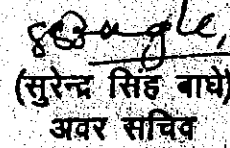 (सुरेन्द्र सिंह बाघे)
अवर सचिव